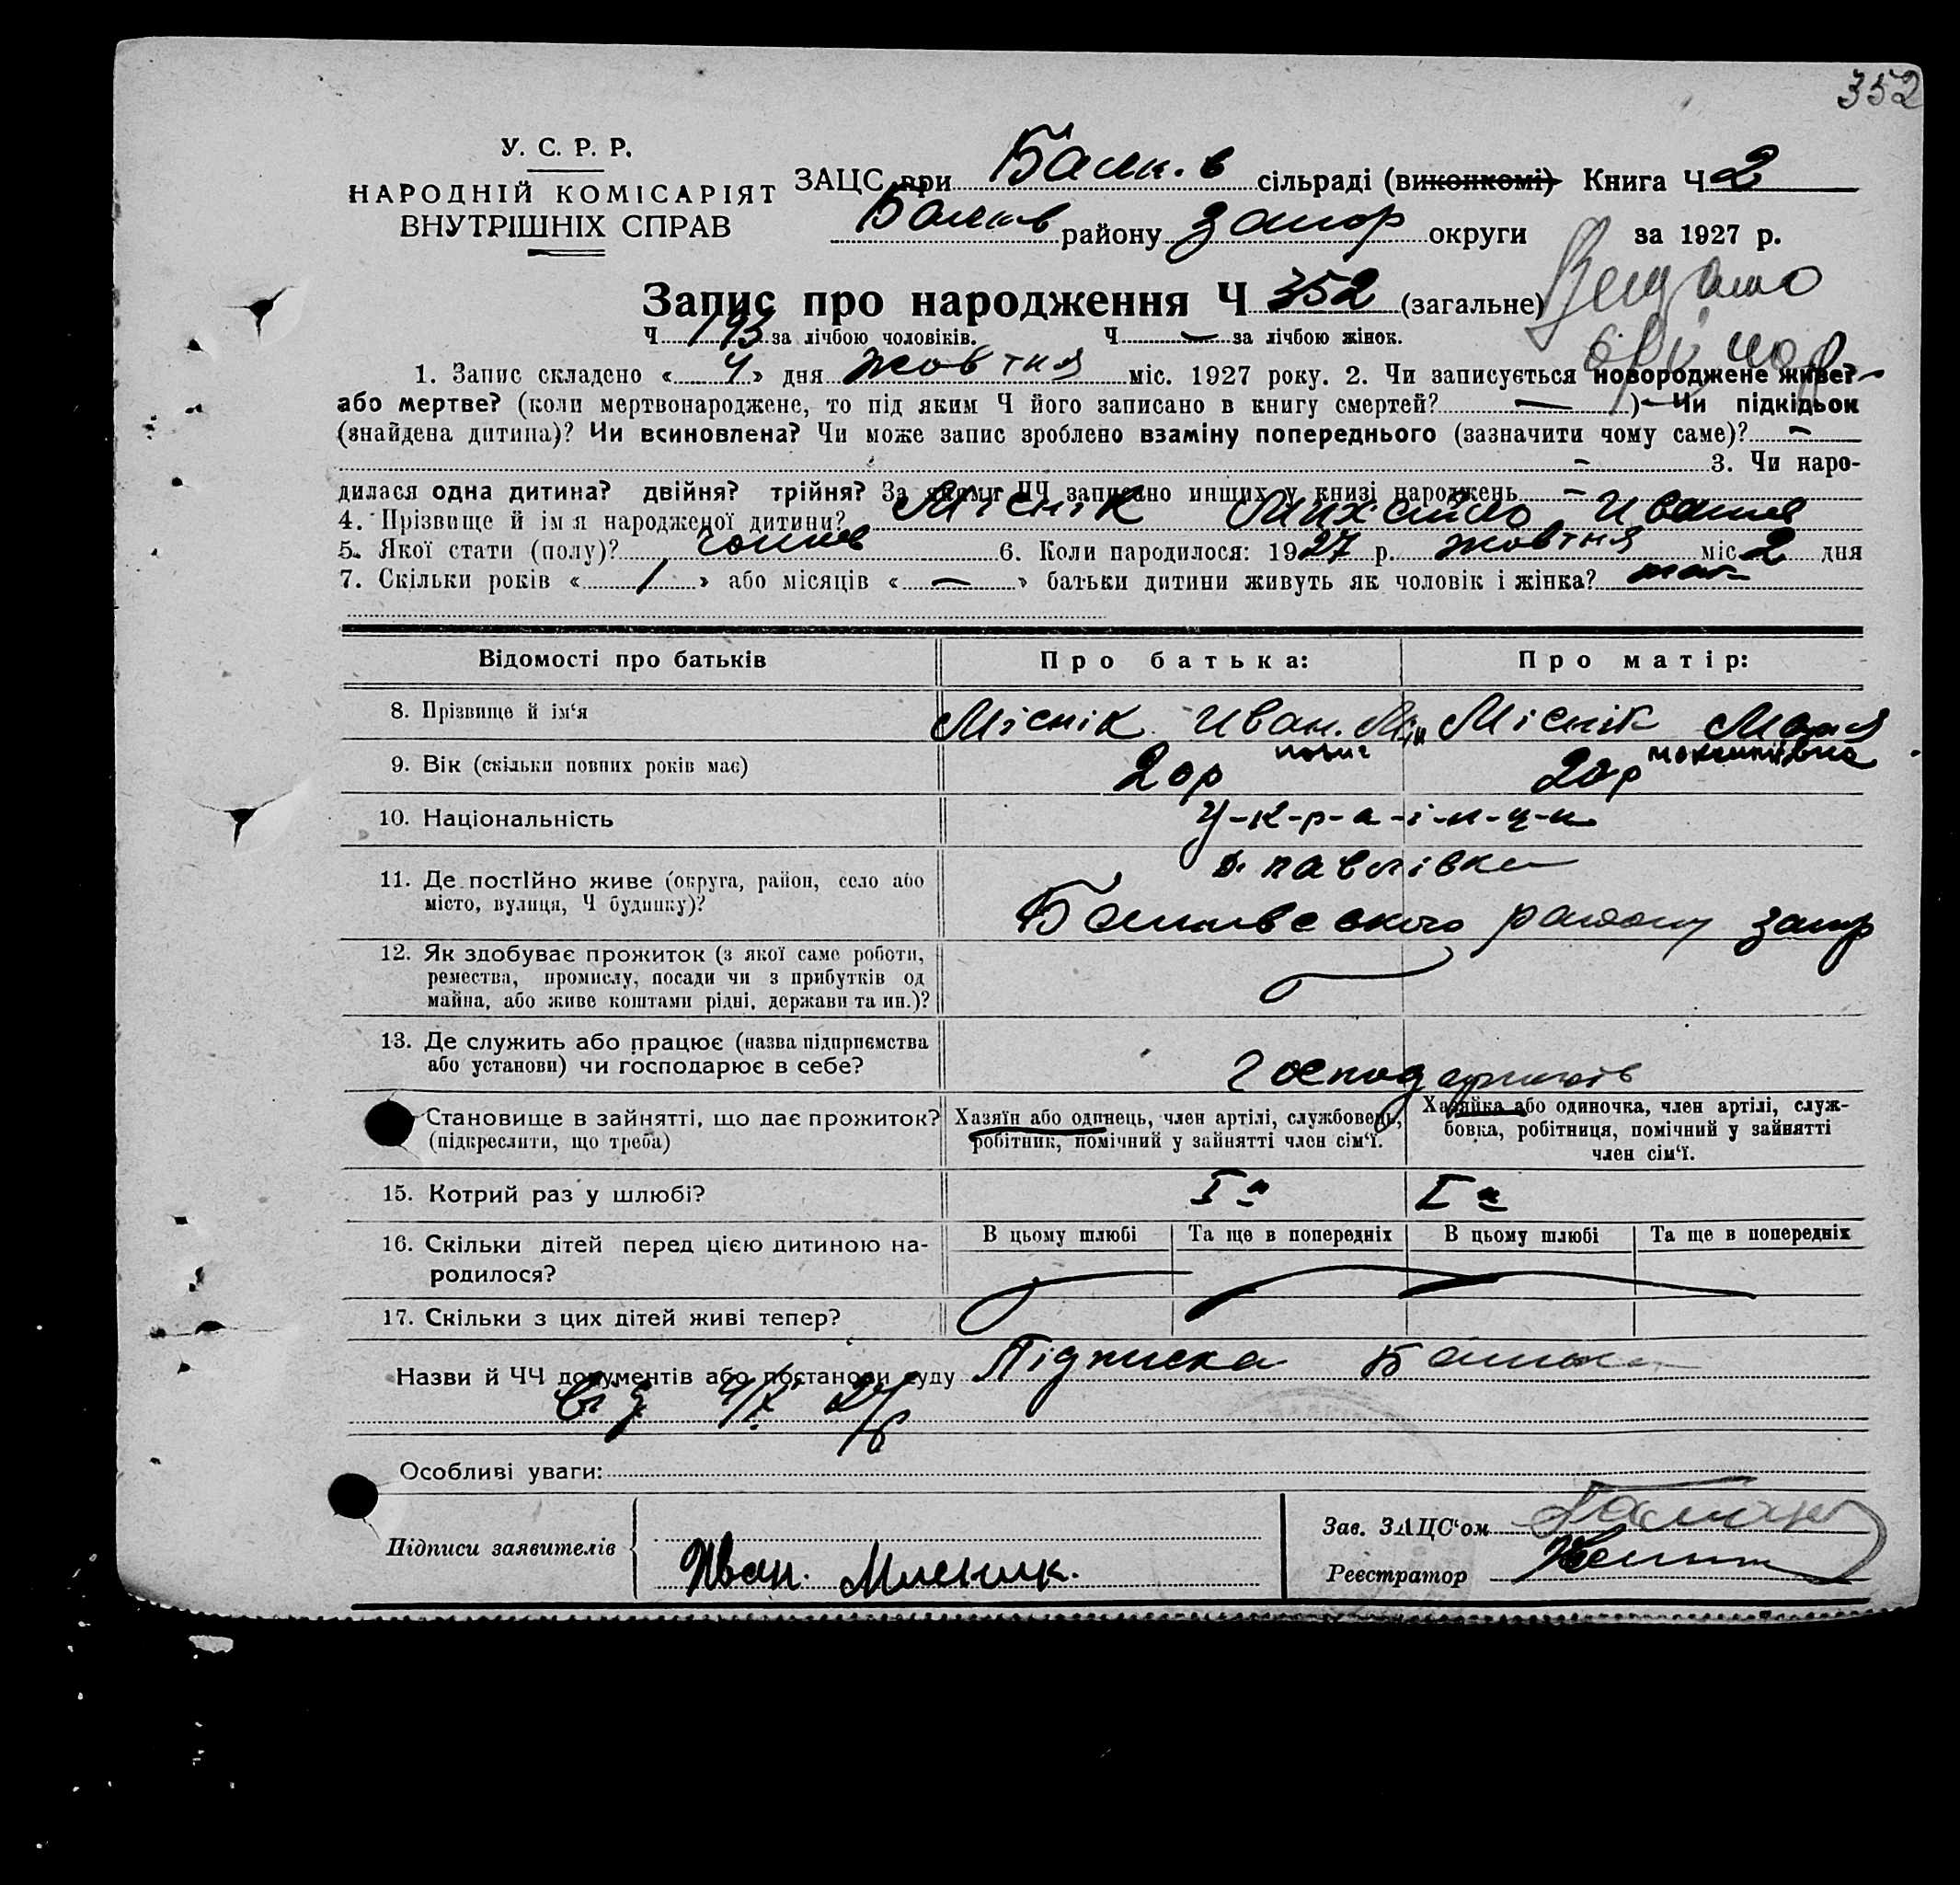 352
У. С. Р. Р.
НАРОДНІЙ КОМІСАРІЯТ
ВНУТРІШНІХ СПРАВ
ЗАЦС при сільраді (виконкомі) Книга Ч 2
району Запор округи за 1927 р.
Запис про народження Ч 352 (загальне)
Видано
Ч 193 за лічбою чоловіків. Ч — за лічбою жінок.
1. Запис складено « 4 » дня жовтня міс. 1927 року. 2. Чи записується новороджене живе?
або мертве? (коли мертвонароджене, то під яким Ч його записано в книгу смертей? — ) Чи підкідьок
(знайдена дитина)? Чи всиновлена? Чи може запис зроблено взаміну попереднього (зазначити чому саме)? —
— 3. Чи наро-
дилася одна дитина? двійня? трійня? За якими ЧЧ записано инших у книзі народжень —
4. Прізвище й ім'я народженої дитини? Міснік Михайло Ивание
5. Якої стати (полу)? чолов 6. Коли народилося: 1927 р. жовтня міс 2 дня
7. Скільки років « 1 » або місяців « — » батьки дитини живуть як чоловік і жінка?
Відомості про батьків Про батька: Про матір:
8. Прізвище й ім'я Міснік Иван. Міснік Мария
9. Вік (скільки повних років має) 20р 20р
10. Національність У-к-р-а-ї-н-ц-и
11. Де постійно живе (округа, район, село або
місто, вулиця, Ч будинку)?
с. Павлівка
району Запор
12. Як здобуває прожиток (з якої саме роботи,
ремества, промислу, посади чи з прибутків од
майна, або живе коштами рідні, держави та ин.)?
13. Де служить або працює (назва підприємства
або установи) чи господарює в себе?
Господарюють
Становище в зайнятті, що дає прожиток?
(підкреслити, що треба)
Хазяїн або одинець, член артілі, службовець,
робітник, помічний у зайнятті член сім'ї.
Хазяйка або одиночка, член артілі, служ-
бовка, робітниця, помічний у зайнятті
член сім'ї.
15. Котрий раз у шлюбі? I й I й
16. Скільки дітей перед цією дитиною на-
родилося?
В цьому шлюбі Та ще в попередніх В цьому шлюбі Та ще в попередніх
17. Скільки з цих дітей живі тепер?
Назви й ЧЧ документів або постанови суду Підписка Батька
від 4/X 27
Особливі уваги:
Підписи заявителів
Иван. Мисник.
Зав. ЗАЦС'ом
Реєстратор